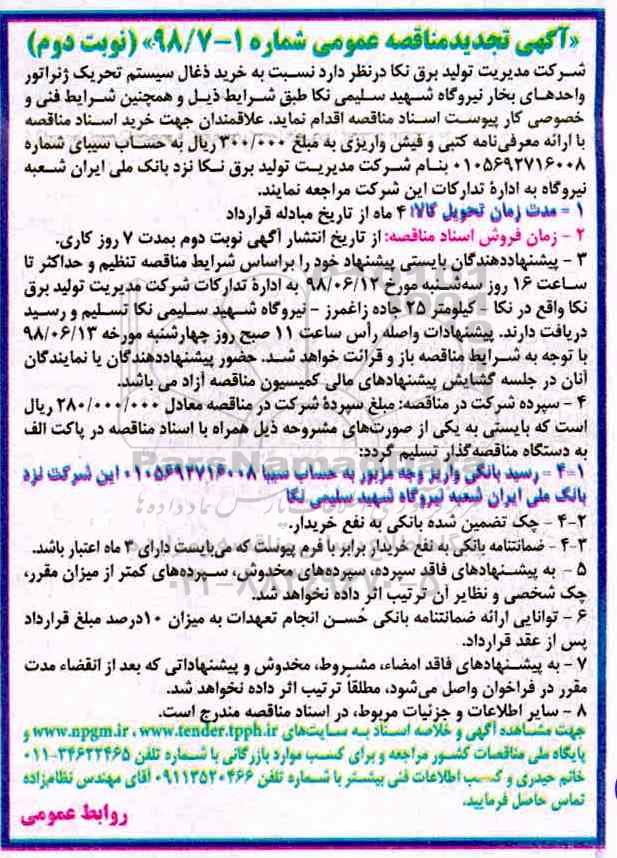 «آگهی تجدیدمناقصه عمومی شماره ۱-۹۸/۷» (نوبت دوم)
شرکت مدیریت تولید برق نکا درنظر دارد نسبت به خرید ذغال سیستم تحریک ژنراتور
واحدهـای بخار نیروگاه شـهید سـلیمی نکا طبق شـرایط ذیـل و همچنین شرایط فنی و
خصوصی کار پیوست اسناد مناقصه اقدام نماید. علاقمندان جهت خرید اسناد مناقصه
با ارائه معرفی‌نامه کتبی و فیش واریزی به مبلغ ۳۰۰/۰۰۰ ریال به حساب سیبای شماره
۰۱۰۵۶۹۲۷۱۶۰۰۸ بنـام شـرکت مدیریـت تولید برق نـکا نزد بانک ملی ایران شـعبه
نیروگاه به ادارۀ تدارکات این شرکت مراجعه نمایند.
۱ – مدت زمان تحویل کالا: ۴ ماه از تاریخ مبادله قرارداد
۲ – زمان فروش اسناد مناقصه: از تاریخ انتشار آگهی نوبت دوم بمدت ۷ روز کاری.
۳ – پیشنهاددهندگان بایستی پیشنهاد خود را براساس شرایط مناقصه تنظیم و حداکثر تا
سـاعت ۱۶ روز سه‌شـنبه مورخ ۹۸/۰۶/۱۲ به ادارۀ تدارکات شرکت مدیریت تولید برق
نکا واقع در نکا – کیلومتر ۲۵ جاده زاغمرز – نیروگاه شـهید سـلیمی نکا تسـلیم و رسـید
دریافت دارند. پیشنهادات واصله رأس ساعت ۱۱ صبح روز چهارشنبه مورخه ۹۸/۰۶/۱۳
با توجه به شـرایط مناقصه باز و قرائت خواهد شـد. حضور پیشنهاددهندگان یا نمایندگان
آنان در جلسه گشایش پیشنهادهای مالی کمیسیون مناقصه آزاد می باشد.
۴ – سپرده شرکت در مناقصه: مبلغ سپردۀ شرکت در مناقصه معادل ۲۸۰/۰۰۰/۰۰۰ ریال
است که بایستی به یکی از صورت‌های مشروحه ذیل همراه با اسناد مناقصه در پاکت الف
به دستگاه مناقصه‌گذار تسلیم گردد:
۴-۱ – رسید بانکی واریز وجه مزبور به حساب سیبا ۰۱۰۵۶۹۲۷۱۶۰۰۸ این شرکت نزد
بانک ملی ایران شعبه نیروگاه شهید سلیمی نکا
۴-۲ – چک تضمین شده بانکی به نفع خریدار.
۴-۳ – ضمانتنامه بانکی به نفع خریدار برابر با فرم پیوست که می‌بایست دارای ۳ ماه اعتبار باشد.
۵ – به پیشـنهادهای فاقد سپرده، سپرده‌های مخدوش، سـپرده‌های کمتر از میزان مقرر،
چک شخصی و نظایر آن ترتیب اثر داده نخواهد شد.
۶ – توانایی ارائه ضمانتنامه بانکی حُسـن انجام تعهدات به میزان ۱۰درصد مبلغ قرارداد
پس از عقد قرارداد.
۷ – به پیشـنهادهای فاقد امضاء، مشـروط، مخدوش و پیشنهاداتی که بعد از انقضاء مدت
مقرر در فراخوان واصل می‌شود، مطلقاً ترتیب اثر داده نخواهد شد.
۸ – سایر اطلاعات و جزئیات مربوط، در اسناد مناقصه مندرج است.
جهت مشـاهده آگهی و خلاصه اسـناد به سـایت‌های www.npgm.ir ، www.tender.tpph.ir و
پایگاه ملی مناقصات کشـور مراجعه و برای کسـب موارد بازرگانی با شـماره تلفن ۳۴۶۲۲۴۶۵-۰۱۱
خانم حیدری و کسب اطلاعات فنی بیشتر با شماره تلفن ۰۹۱۱۳۵۲۰۴۶۶ آقای مهندس نظام‌زاده
تماس حاصل فرمایید.
روابط عمومی
ParsNamadData